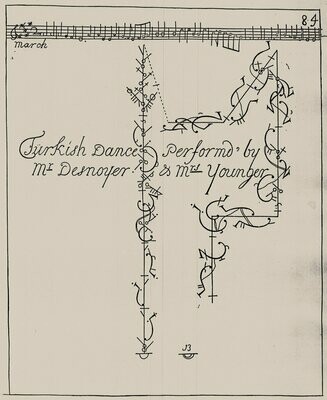 84
march
Turkish Dance Perform'd by
Mr Desnoyer & Mrs Younger
13